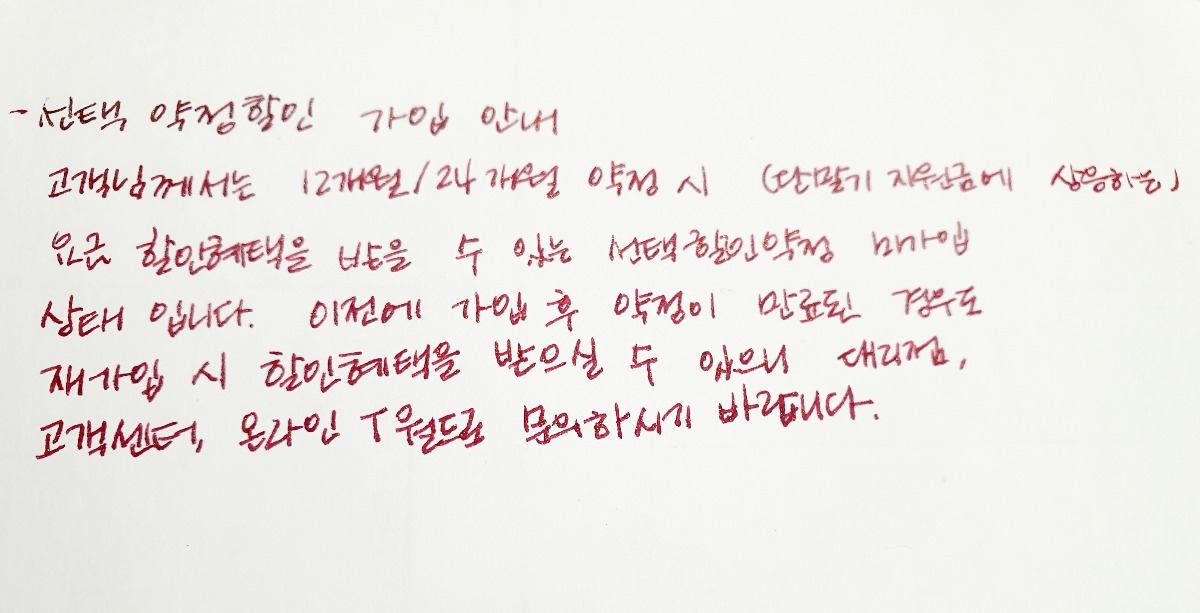 - 선택 약정할인 가입 안내
고객님께서는 12개월/24개월 약정 시 (단말기 지원금에 상응하는)
요금 할인혜택을 받을 수 있는 선택할인약정 미가입
상태 입니다. 이전에 가입 후 약정이 만료된 경우도
재가입 시 할인혜택을 받으실 수 있으니 대리점,
고객센터, 온라인 T월드로 문의하시기 바랍니다.